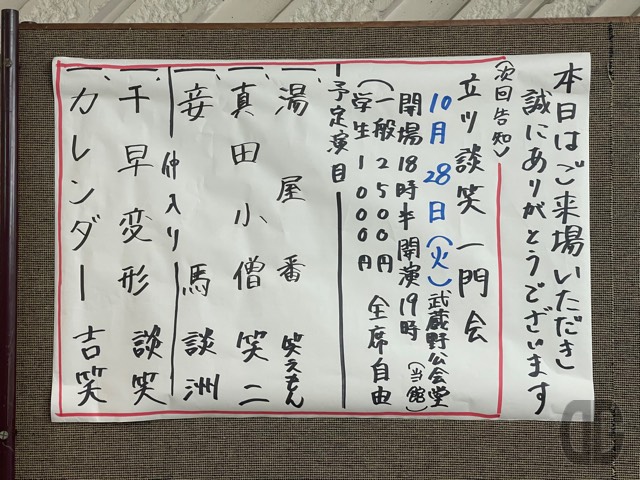 本日はご来場いただき
誠にありがとうございます
(次回告知)
立川談笑一門会
10月28日(火)武蔵野公会堂(当館)
開場18時半開演19時
(一般2500円
学生1000円
全席自由
予定演目
一、湯屋番 笑えもん
一、真田小僧 笑二
一、妾馬 談洲
仲入り
一、千早変形 談笑
一、カレンダー 吉笑